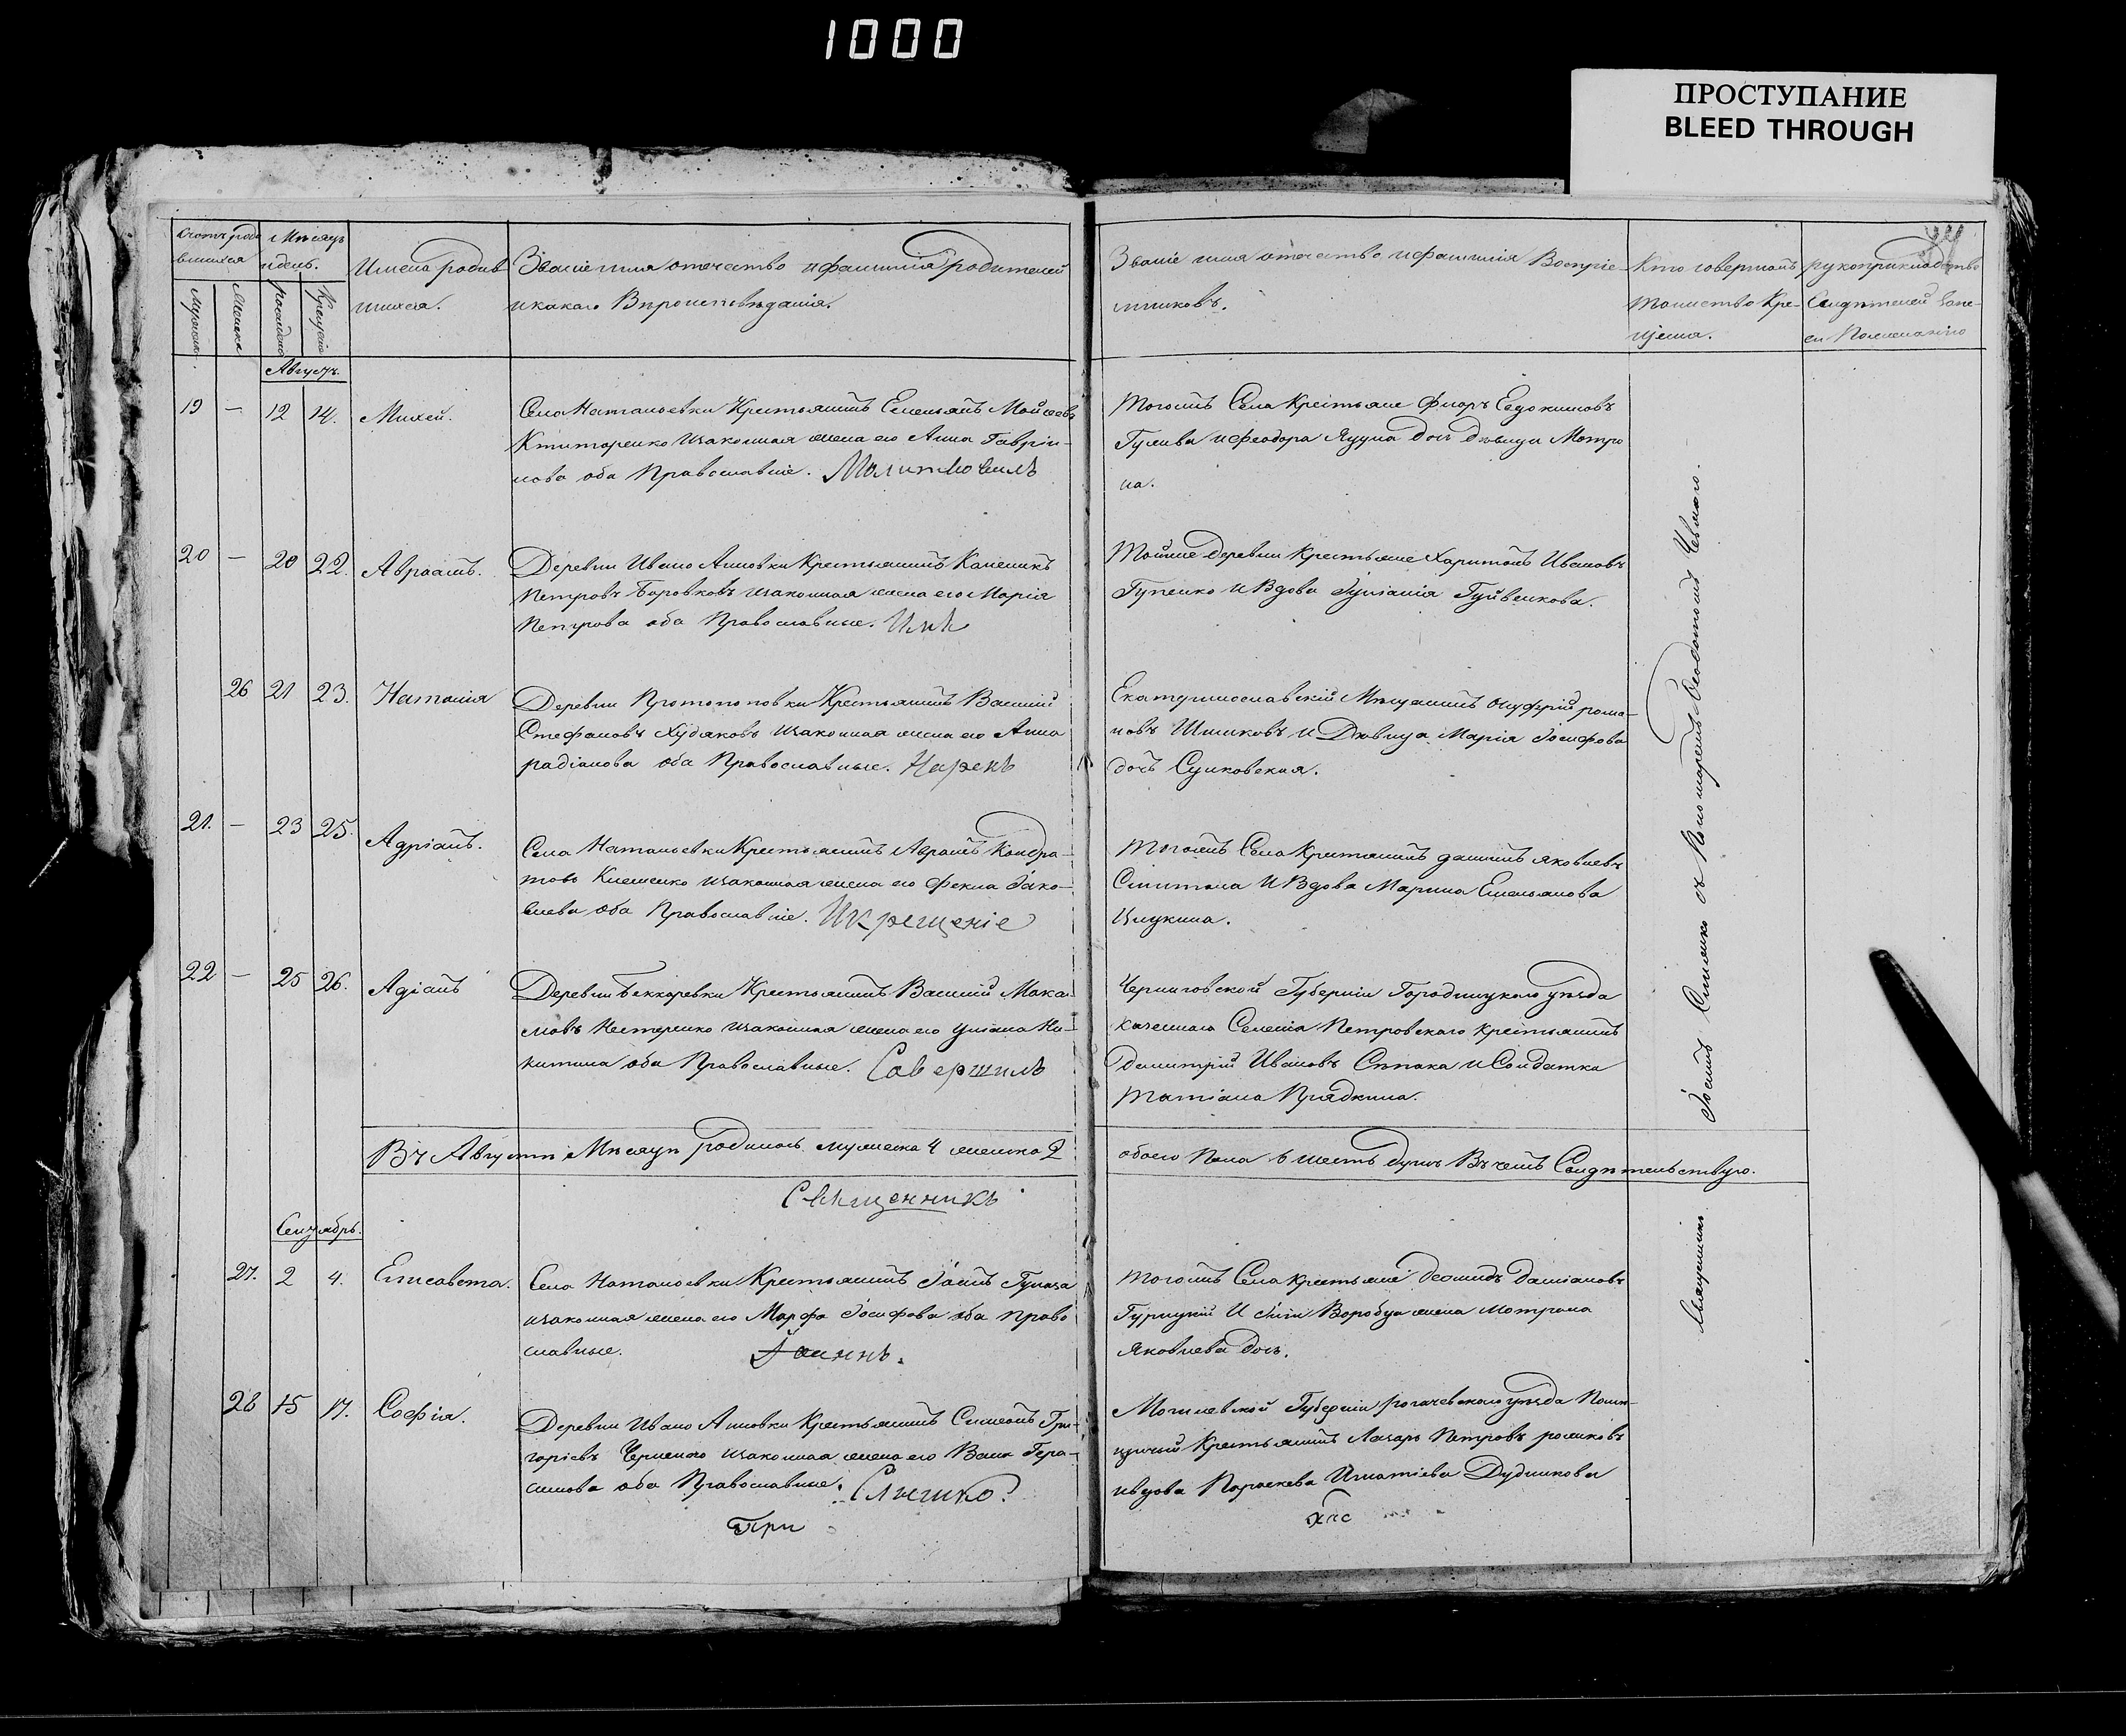 1000
ПРОСТУПАНИЕ
BLEED THROUGH
Счотъ роди
вшихся
Мѣсяцъ
и день.
Имена родив
шихся.
Званіе имя отечество и фамилія родителей
и какаго Вѣроисповѣданія.
Званіе имя отечество и фамилія Воспріе-
мниковъ.
Кто совершалъ
таинство Кре-
щенія.
рукоприкладство
Свидѣтелей
Августъ.
19 – 12 14. Михей.
Села Натальевки Крестьянинъ Емельянъ Мойсеевъ
Ктиторенко и законная жена его Анна Гаврiи-
лова оба Православніе. Молитвовилъ
Тогожъ Села Крестьяне Флоръ Евдокимовъ
и Феодора Яцуна дочь дѣвица Мотро
на.
20 – 20 22. Авраамъ.
Деревни Ивано Анновки Крестьянинъ Каленикъ
Петровъ Боровковъ и законная жена его Марія
Петрова оба Православные. Имя
Тойже деревни Крестьяне Харитонъ Ивановъ
Гупенко и Вдова Іуліанія Гуйвенкова.
26 21 23. Наталія
Деревни Протопоповки Крестьянинъ Василій
Стефановъ Худяковъ и законная жена его Анна
радіонова оба Православные. Нарекъ
Екатеринославскій Мѣщанинъ Онуфрій рома-
новъ Шишковъ и Дѣвица Марія Іосифова
дочъ Сушковская.
21. – 23 25. Адріанъ.
Села Натальевки Крестьянинъ Авраамъ Кондра-
товъ Клеменко и законная жена его Фекла Іако-
влева оба Православніе. И крещеніе
Тогожъ Села Крестянинъ даніилъ яковлевъ
и Вдова Марина Емельянова
22 – 25 26. Адіанъ
Деревни Беккаревки Крестьянинъ Василій Мака-
ловъ Нестеренко и законная жена его Уліана Ни-
китина оба Православные. Совершилъ
Черниговской Губерніи Городницкаго уѣзда
казеннаго Селенія Петровскаго Крестьянинъ
Димитрій Ивановъ Сѣпака и Солдатка
Татіана Прядкина.
Въ Августѣ Мѣсяцѣ родилось мужеска 4 женска 2
обоего Пола 6 шесть душъ Въ чемъ Свидѣтельствую.
Священникъ
Сентябрь.
27. 2 4. Елисавета.
Села Натальевки Крестьянинъ Іоанъ Гупала
и законная жена его Марфа Іосифова оба Право
славные. Іоаннъ.
Тогожъ Села крестьяне Леонидъ Даміановъ
Гурицкій и Воробца жена Мотрона
Яковлева дочь.
28 15 17. Софія.
Деревни Ивано Анновки Крестьянинъ Симеонъ Гри-
горіевъ и законная жена его Васса Гера-
симова оба Православные. Слѣшко
При
Могилевской Губерніи рогачевскаго уѣзда Помѣ-
щичый Крестьянинъ Лазарь Петровъ
и вдова Параскева Игнатіева Дудникова
Священникъ Іоаннъ съ Пономаремъ Феодотомъ